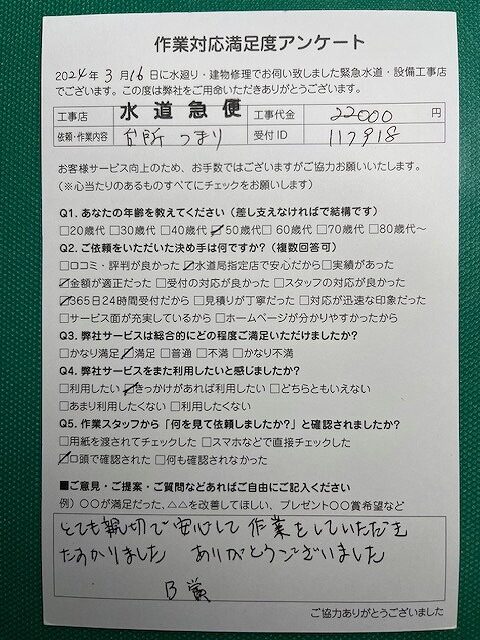 作業対応満足度アンケート
2024年3月16日に水廻り・建物修理でお伺い致しました緊急水道・設備工事店
でございます。この度は弊社をご用命いただきありがとうございます。
工事店 水道急便 工事代金 22000 円
依頼・作業内容 台所 つまり 受付ID 117918
お客様サービス向上のため、お手数ではございますがご協力お願いいたします。
(※心当たりのあるものすべてにチェックをお願いします)
Q1. あなたの年齢を教えてください(差し支えなければで結構です)
□20歳代 □30歳代 □40歳代 ☑50歳代 □60歳代 □70歳代 □80歳代〜
Q2. ご依頼をいただいた決め手は何ですか?(複数回答可)
□口コミ・評判が良かった ☑水道局指定店で安心だから □実績があった
☑金額が適正だった □受付の対応が良かった □スタッフの対応が良かった
☑365日24時間受付だから □見積りが丁寧だった □対応が迅速な印象だった
□サービス面が充実しているから □ホームページが分かりやすかったから
Q3. 弊社サービスは総合的にどの程度ご満足いただけましたか?
□かなり満足 ☑満足 □普通 □不満 □かなり不満
Q4. 弊社サービスをまた利用したいと感じましたか?
□利用したい ☑きっかけがあれば利用したい □どちらともいえない
□あまり利用したくない □利用したくない
Q5. 作業スタッフから「何を見て依頼しましたか?」と確認されましたか?
□用紙を渡されてチェックした □スマホなどで直接チェックした
☑口頭で確認された □何も確認されなかった
■ご意見・ご提案・ご質問などあればご自由にご記入ください
例)〇〇が満足だった、△△を改善してほしい、プレゼント〇〇賞希望など
とても親切で安心して作業をしていただき
たすかりました ありがとうございました
B賞
ご協力ありがとうございました